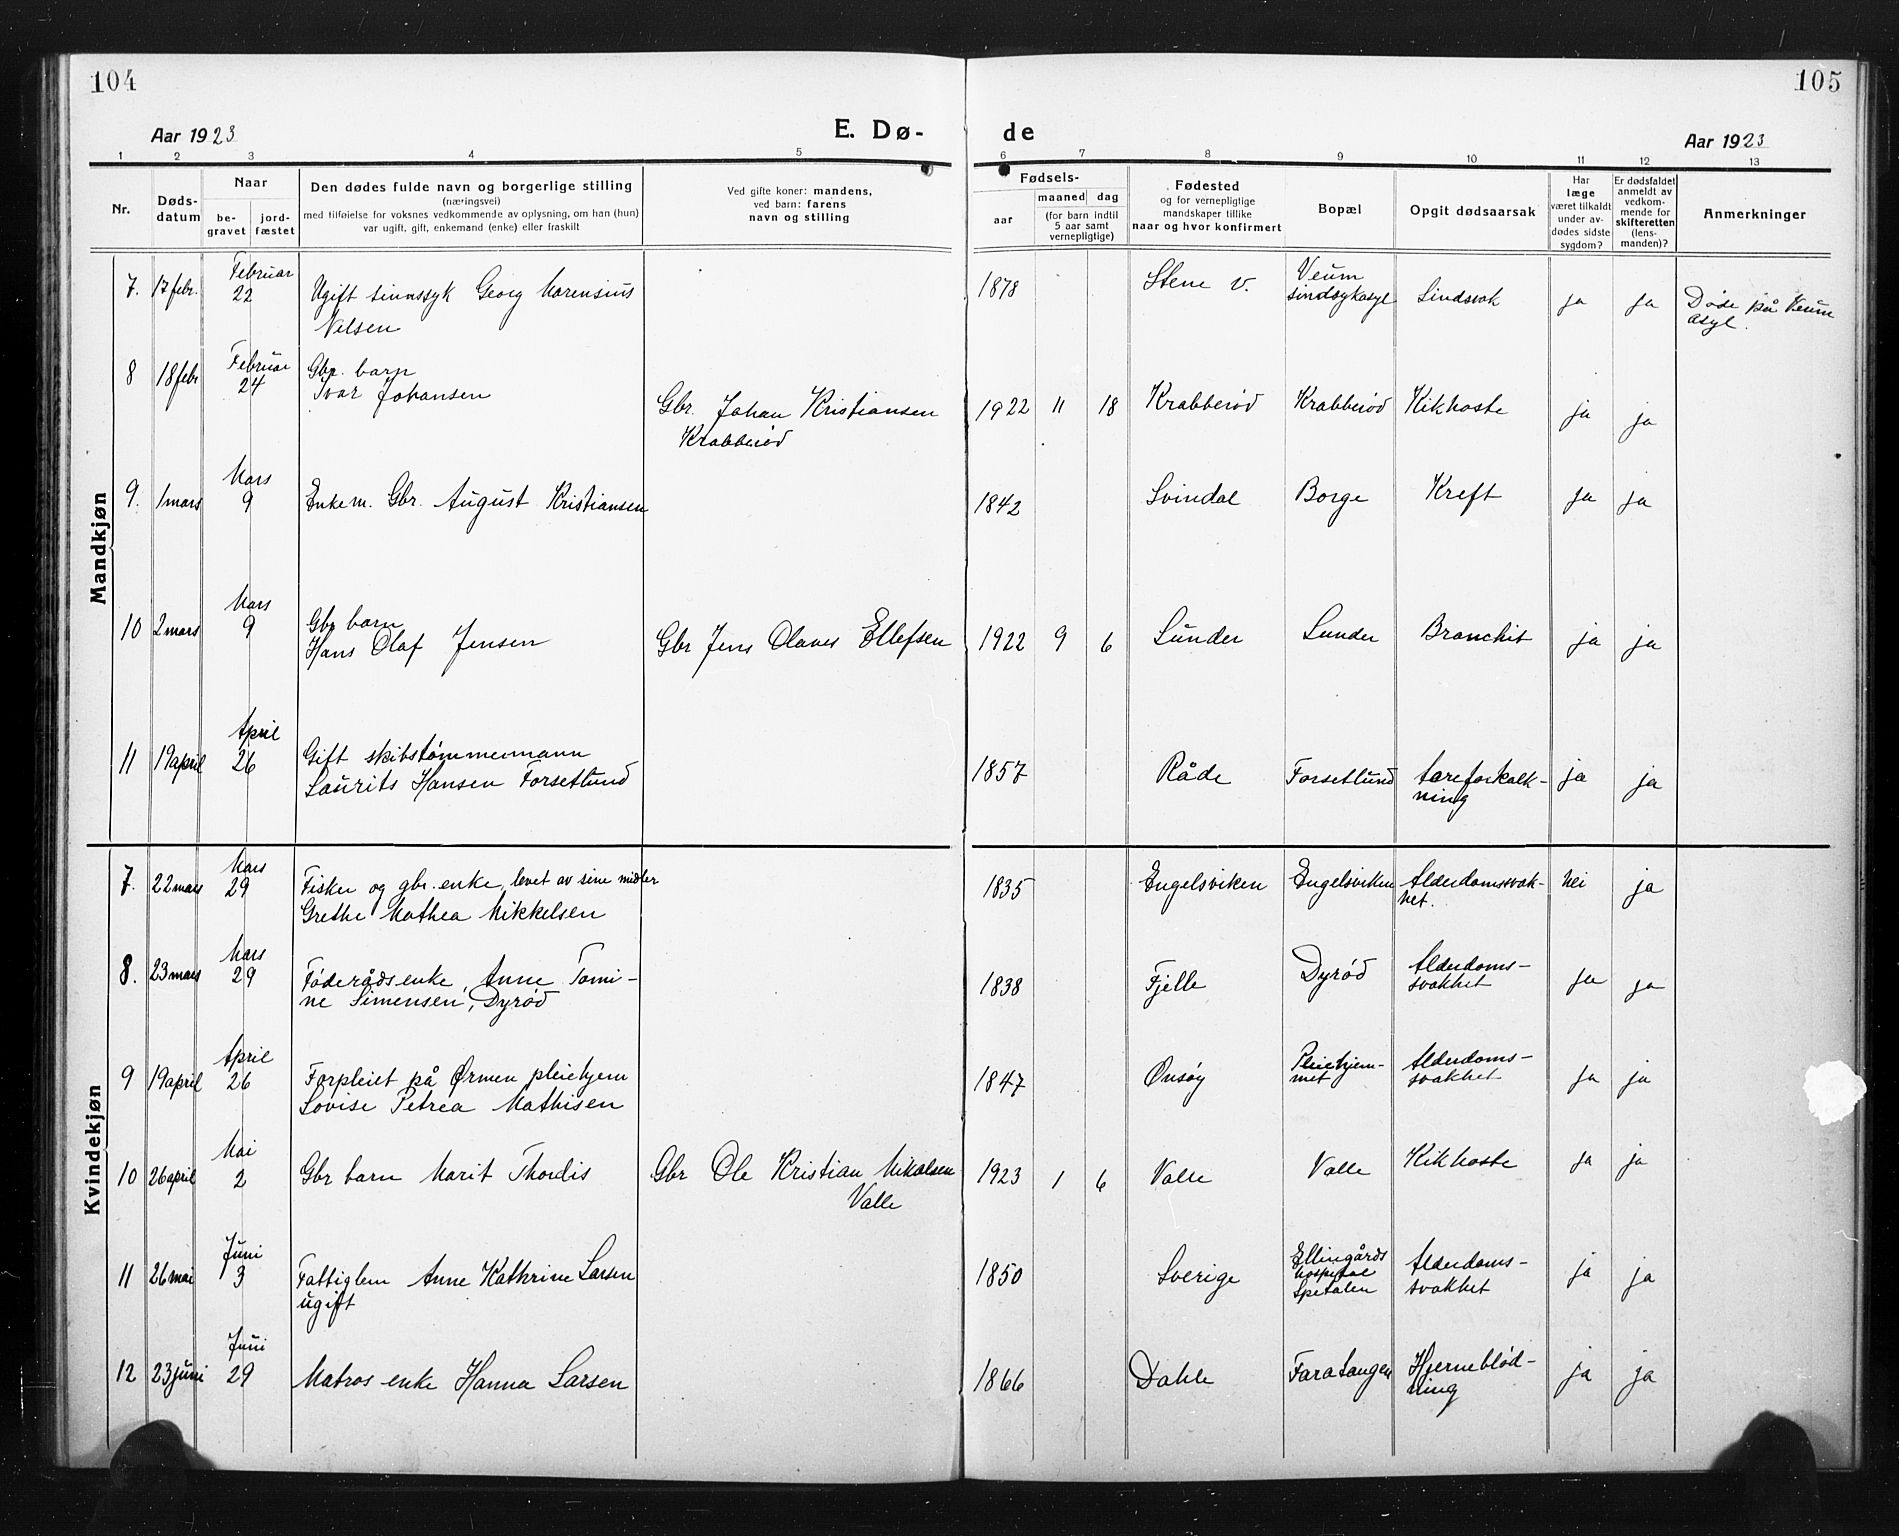 104
105
Aar 1923
E. Dø-
de
Aar 1923
1 2 3 4 5 6 7 8 9 10 11 12 13
Nr.
Døds-
datum
Naar
be-
gravet
jord-
fæstet
Den dødes fulde navn og borgerlige stilling
(næringsvei)
med tilføielse for voksnes vedkommende av oplysning, om han (hun)
var ugift, gift, enkemand (enke) eller fraskilt
Ved gifte koner: mandens,
ved barn: farens
navn og stilling
Fødsels-
aar
maaned dag
(for barn indtil
5 aar samt
vernepligtige)
Fødested
og for vernepligtige
mandskaper tillike
naar og hvor konfirmert
Bopæl
Opgit dødsaarsak
Har
læge
været tilkaldt
under av-
dødes sidste
sygdom?
Er dødsfaldet
anmeldt av
vedkom-
mende for
skifteretten
(lens-
manden)?
Anmerkninger
Mandkjøn
Februar
7. 17 febr. 22 Ugift sinnssyk Georg Marensius
Nelsen
1878 Stene v.
Veum
sindsykasyl
Sindsvak ja ja
Døde på Veum
Asyl.
Februar
8 18 febr 24
Gbr. barn
Ivar Johansen
Gbr. Johan Kristiansen
Krabberød
1922 11 18 Krabberød Krabberød Kikhoste ja ja
Mars
9. 1 mars 9 Enkem. Gbr. August Kristiansen 1842 Svindal Borge Kreft ja ja
Mars
10 2 mars 9
Gbr barn
Hans Olaf Jensen
Gbr Jens Olaves Ellefsen 1922 9 6 Lunder Lunder Bronchit ja ja
April
11 19 april 26 Gift skibstømmermann
Laurits Hansen Forsetlund
1857 Råde Forsetlund åreforkalk-
ning
ja ja
Kvindekjøn
Mars
7. 22 mars 29 Fisker og gbr. enke, levet av sine midler
Grethe Mathea Mikkelsen
1835 Engelsviken Engelsviken Alderdomssvak-
het.
Nei ja
Mars
8. 23 mars 29 Føderådsenke, Anne Tomi-
ne Simensen, Dyrød
1838 Fjelle Dyrød Alderdoms-
svakhet
ja ja
April
9 19 april 26 Forpleiet på Ørmen pleiehjem
Lovise Petrea Mathisen
1847 Onsøy
Pleiehjem-
met
Alderdoms-
svakhet
ja ja
Mai
10 26 april 2 Gbr barn Marit Thordis Gbr Ole Kristian Nikolsen
Valle
1923 1 6 Valle Valle Kikhoste ja ja
Juni
11 26 mai 3 Fattiglem Anne Kathrine Larsen
ugift
1850 Sverige
Ellingårds
hospital
Spetalen
Alderdoms-
svakhet
ja ja
Juni
12 23 juni 29 Matros enke Hanna Larsen 1866 Dahle Faratangen Hjerneblød-
ning
ja ja